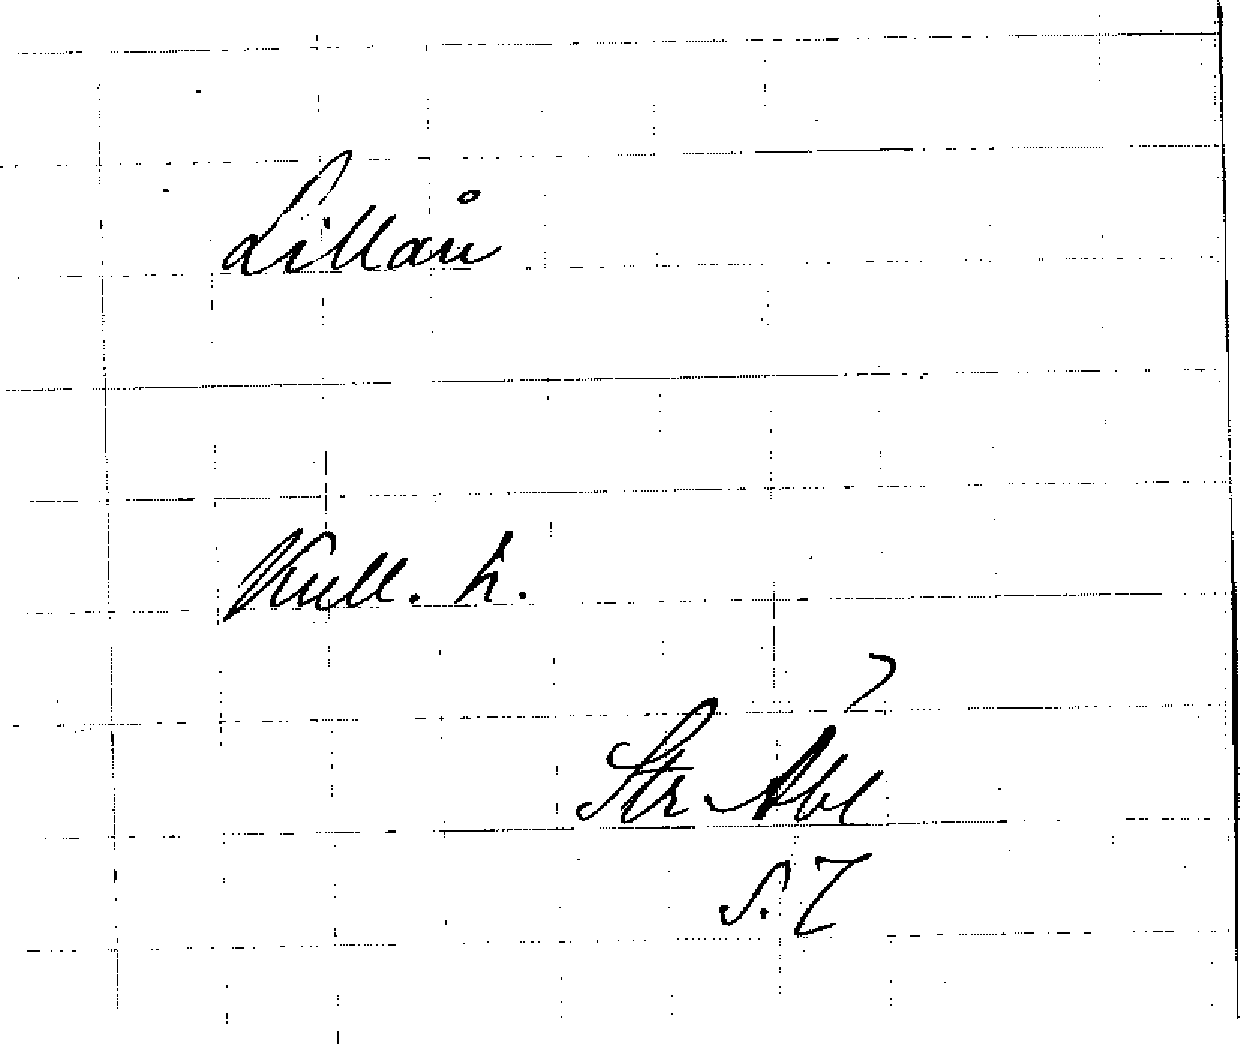 Lillån
Kull. h.
Str. Abl
S. 7